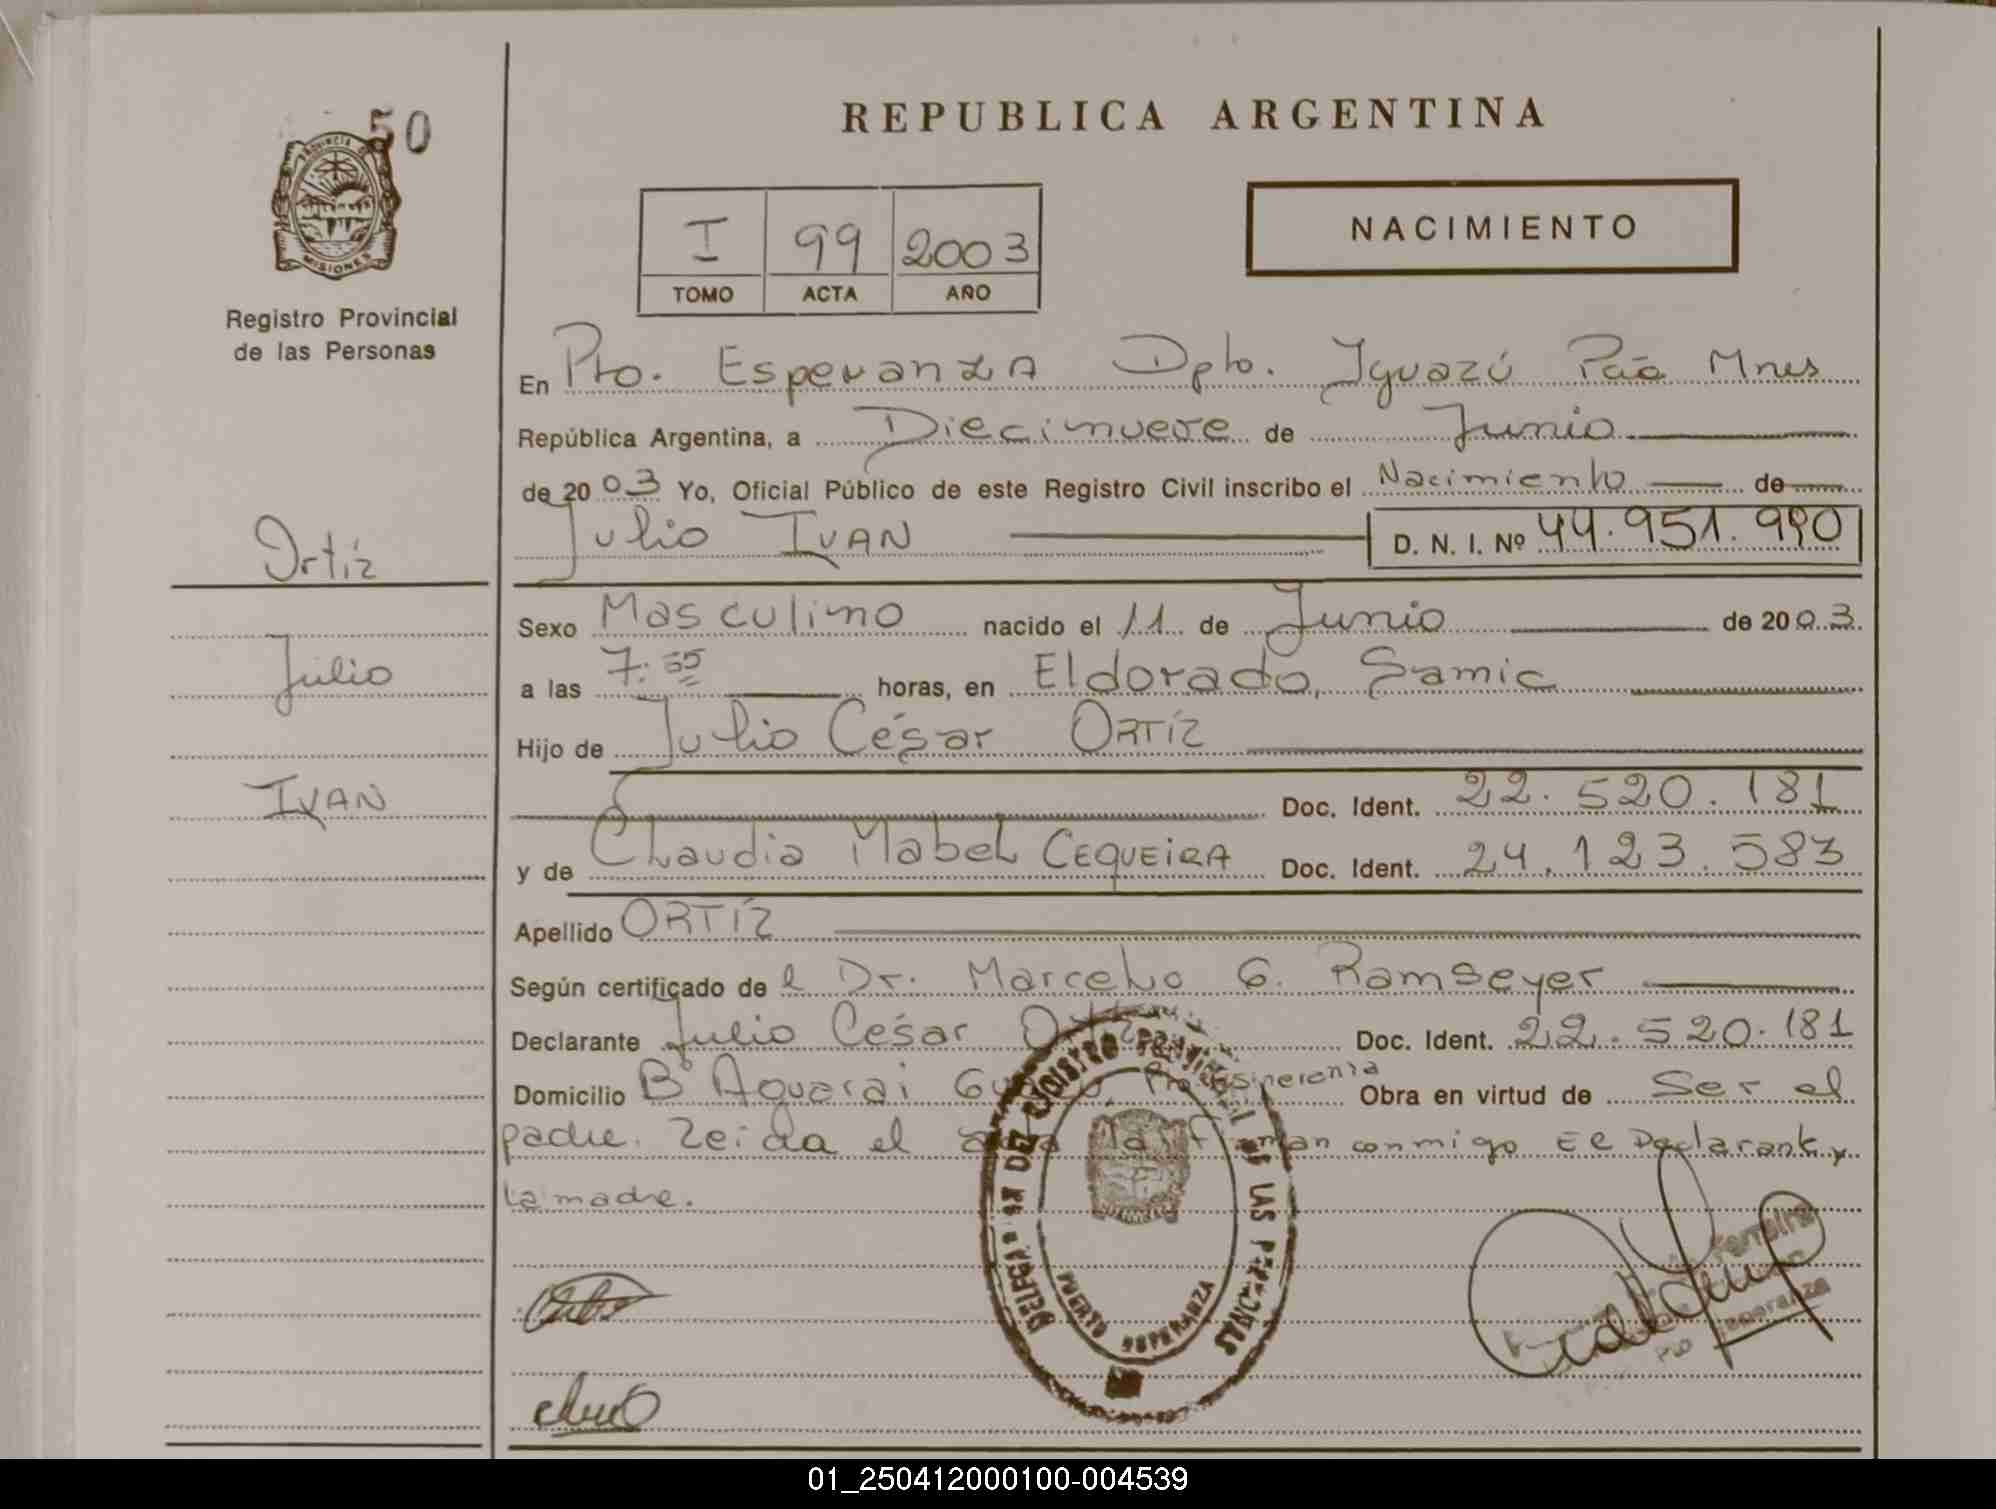 50
PROVINCIA DE
MISIONES
Registro Provincial
de las Personas
Ortíz
Julio
IVAN
REPUBLICA ARGENTINA
I 99 2003
TOMO ACTA AÑO
NACIMIENTO
En Pto. Esperanza Dpto. Iguazú Pcia Mnes
República Argentina, a Diecinueve de Junio
de 2003 Yo, Oficial Público de este Registro Civil inscribo el Nacimiento de
Julio IVAN D. N. I. Nº 44.951.990
Sexo Masculino nacido el 11 de Junio de 2003
a las 7:55 horas, en Eldorado, Samic
Hijo de Julio César ORTÍZ
Doc. Ident. 22.520.181
y de Claudia Mabel CEQUEIRA Doc. Ident. 24.123.583
Apellido ORTÍZ
Según certificado de l Dr. Marcelo G. Ramseyer
Declarante Julio César Ortiz Doc. Ident. 22.520.181
Domicilio Bº Aguarai Obra en virtud de Ser el
padre. Leida el acta la firman conmigo El Declarante y
la madre.
DEL REGISTRO PROVINCIAL DE LAS PERSONAS
PUERTO ESPERANZA
Ferreira
Pto Esperanza
01_250412000100-004539